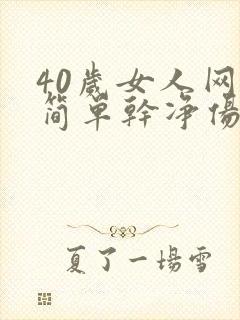 40歲女人网
简單幹净傷
夏了一場雪